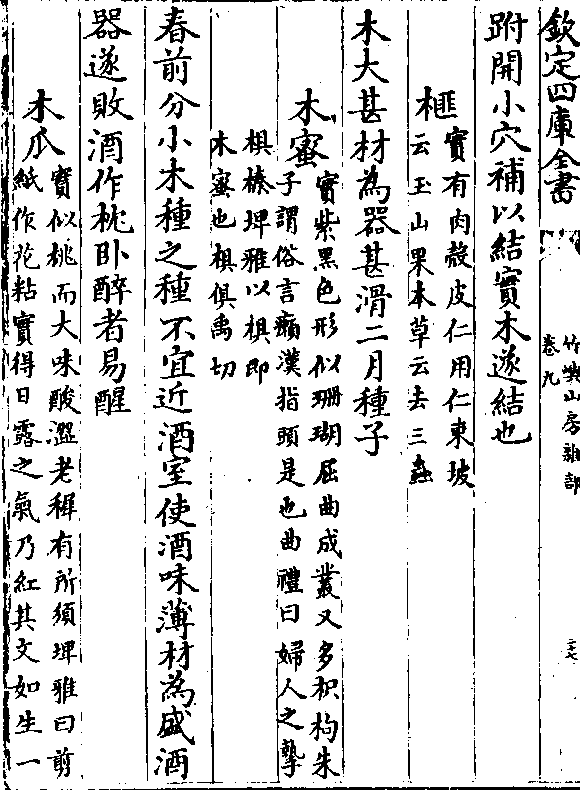 欽定四庫全書
竹嶼山房雜部
卷九
二十七
跗開小穴補以結實木遂結也
榧實有肉殼皮仁用仁東坡
云玉山果本草云去三蟲
木大甚材為器甚滑二月種子
木蜜實紫黑色形似珊瑚屈曲成叢又多枳枸朱
子謂俗言癩漢指頭是也曲禮曰婦人之摯
椇榛埤雅以椇即
木蜜也椇俱禹切
春前分小木種之種不宜近酒室使酒味薄材為盛酒
器遂敗酒作枕卧醉者易醒
木瓜實似桃而大味酸澀老稺有所須埤雅曰剪
紙作花粘實得日露之氣乃紅其文如生一